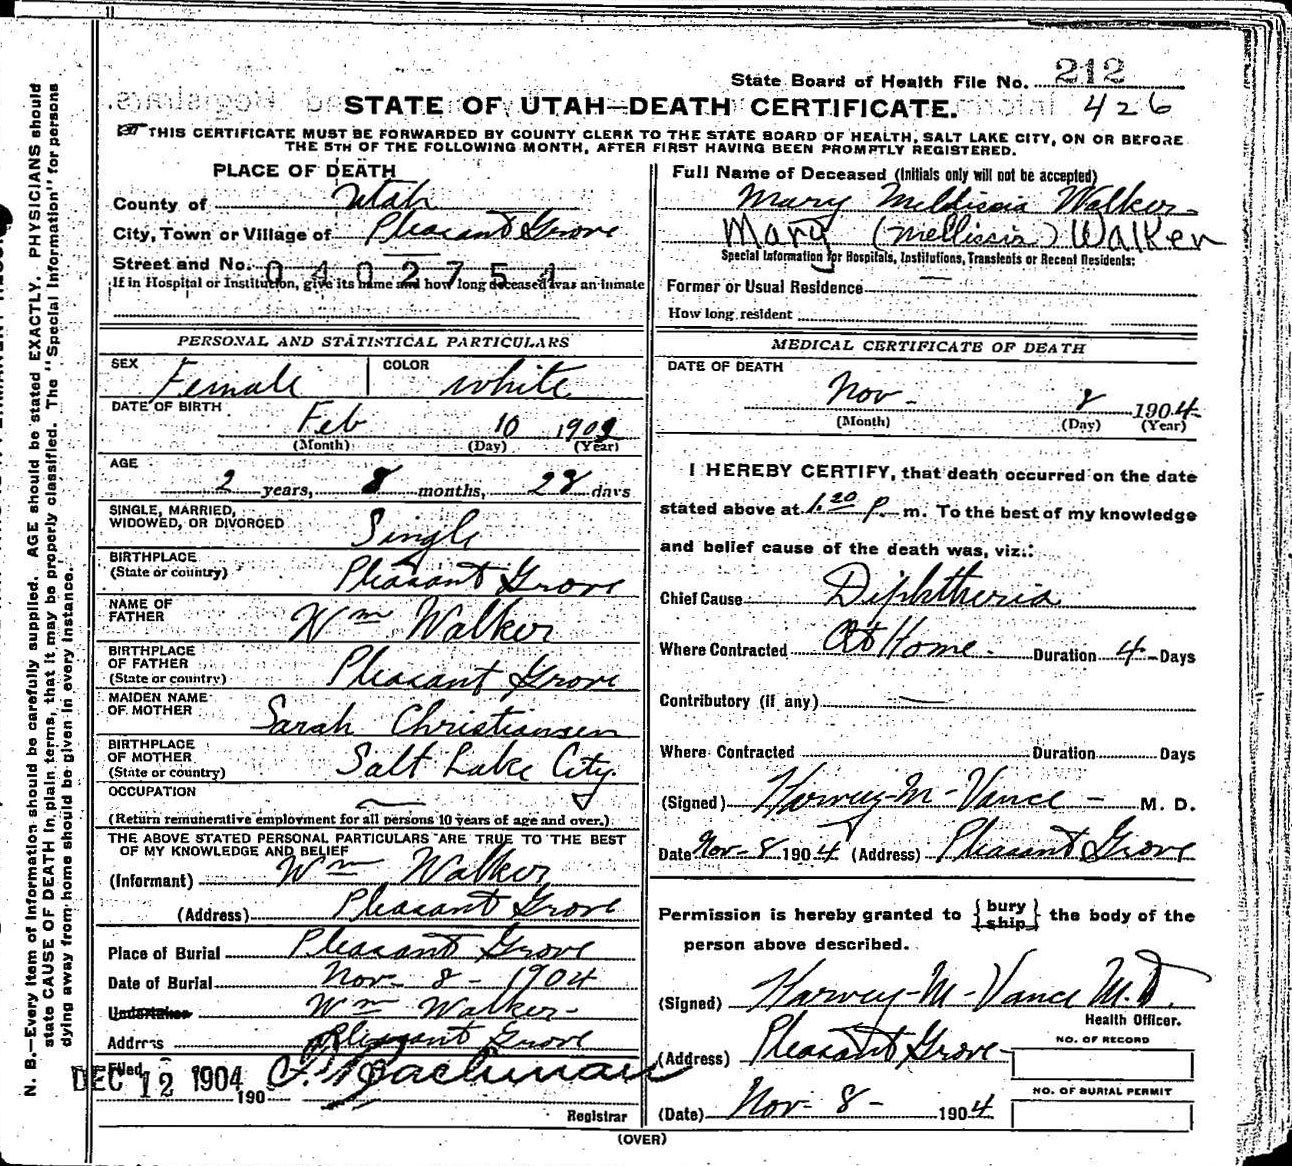 State Board of Health File No. 212
STATE OF UTAH—DEATH CERTIFICATE. 426
THIS CERTIFICATE MUST BE FORWARDED BY COUNTY CLERK TO THE STATE BOARD OF HEALTH, SALT LAKE CITY, ON OR BEFORE
THE 5TH OF THE FOLLOWING MONTH, AFTER FIRST HAVING BEEN PROMPTLY REGISTERED.
PLACE OF DEATH
County of Utah
City, Town or Village of Pleasant Grove
Street and No. 0402751
If in Hospital or Institution, give its name and how long deceased was an inmate
PERSONAL AND STATISTICAL PARTICULARS
SEX Female COLOR white
DATE OF BIRTH Feb 10 1902
(Month) (Day) (Year)
AGE 2 years, 8 months, 28 days
SINGLE, MARRIED,
WIDOWED, OR DIVORCED Single
BIRTHPLACE
(State or country) Pleasant Grove
NAME OF
FATHER Wm Walker
BIRTHPLACE
OF FATHER
(State or country) Pleasant Grove
MAIDEN NAME
OF MOTHER Sarah Christiansen
BIRTHPLACE
OF MOTHER
(State or country) Salt Lake City
OCCUPATION
(Return remunerative employment for all persons 10 years of age and over.)
THE ABOVE STATED PERSONAL PARTICULARS ARE TRUE TO THE BEST
OF MY KNOWLEDGE AND BELIEF
(Informant) Wm Walker
(Address) Pleasant Grove
Place of Burial Pleasant Grove
Date of Burial Nov- 8- 1904
Undertaker Wm Walker-
Address Pleasant Grove
Filed DEC 12 1904 190
Registrar
Full Name of Deceased (Initials only will not be accepted)
Mary Meldissia Walker
Mary (Mellissia) Walker
Special Information for Hospitals, Institutions, Transients or Recent Residents:
Former or Usual Residence
How long resident
MEDICAL CERTIFICATE OF DEATH
DATE OF DEATH
Nov- 8 1904
(Month) (Day) (Year)
I HEREBY CERTIFY, that death occurred on the date
stated above at 1.20 P. m. To the best of my knowledge
and belief cause of the death was, viz.:
Chief Cause Diphtheria
Where Contracted At Home- Duration 4 Days
Contributory (if any)
Where Contracted Duration Days
(Signed) Harvey-M-Vance - M. D.
Date Nov-8 1904 (Address) Pleasant Grove
Permission is hereby granted to {bury ship} the body of the
person above described.
(Signed) Harvey-M-Vance M.D.
Health Officer.
(Address) Pleasant Grove
(Date) Nov- 8- 1904
NO. OF RECORD
NO. OF BURIAL PERMIT
(OVER)
N. B.—Every item of information should be carefully supplied. AGE should be stated EXACTLY. PHYSICIANS should
state CAUSE OF DEATH in plain terms, that it may be properly classified. The "Special Information" for persons
dying away from home should be given in every instance.